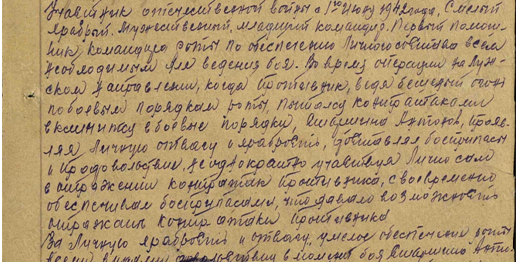 Участник отечественной войны с 1го Июня 1942 года, Смелый
храбрый. Мужественный, младший командир. Первый помощ-
ник командира роты по обеспечению личного состава всем
необходимым для ведения боя. Во время операции на
ском направлении, когда противник, ведя бешеный огонь
по боевым порядкам роты пытался контратаками
вклинится в боевые порядки, старшина прояв-
ляя личную отвагу и храбрость, доставлял боеприпасы
и продовольствие, неоднократно участвуя лично сам
в отражении контратак противника, своевременно
обеспечивал боеприпасами, что давало возможность
отражать контратаки противника
За личную храбрость и отвагу, умелое обеспечение роты
всеми видами в момент боя старшина